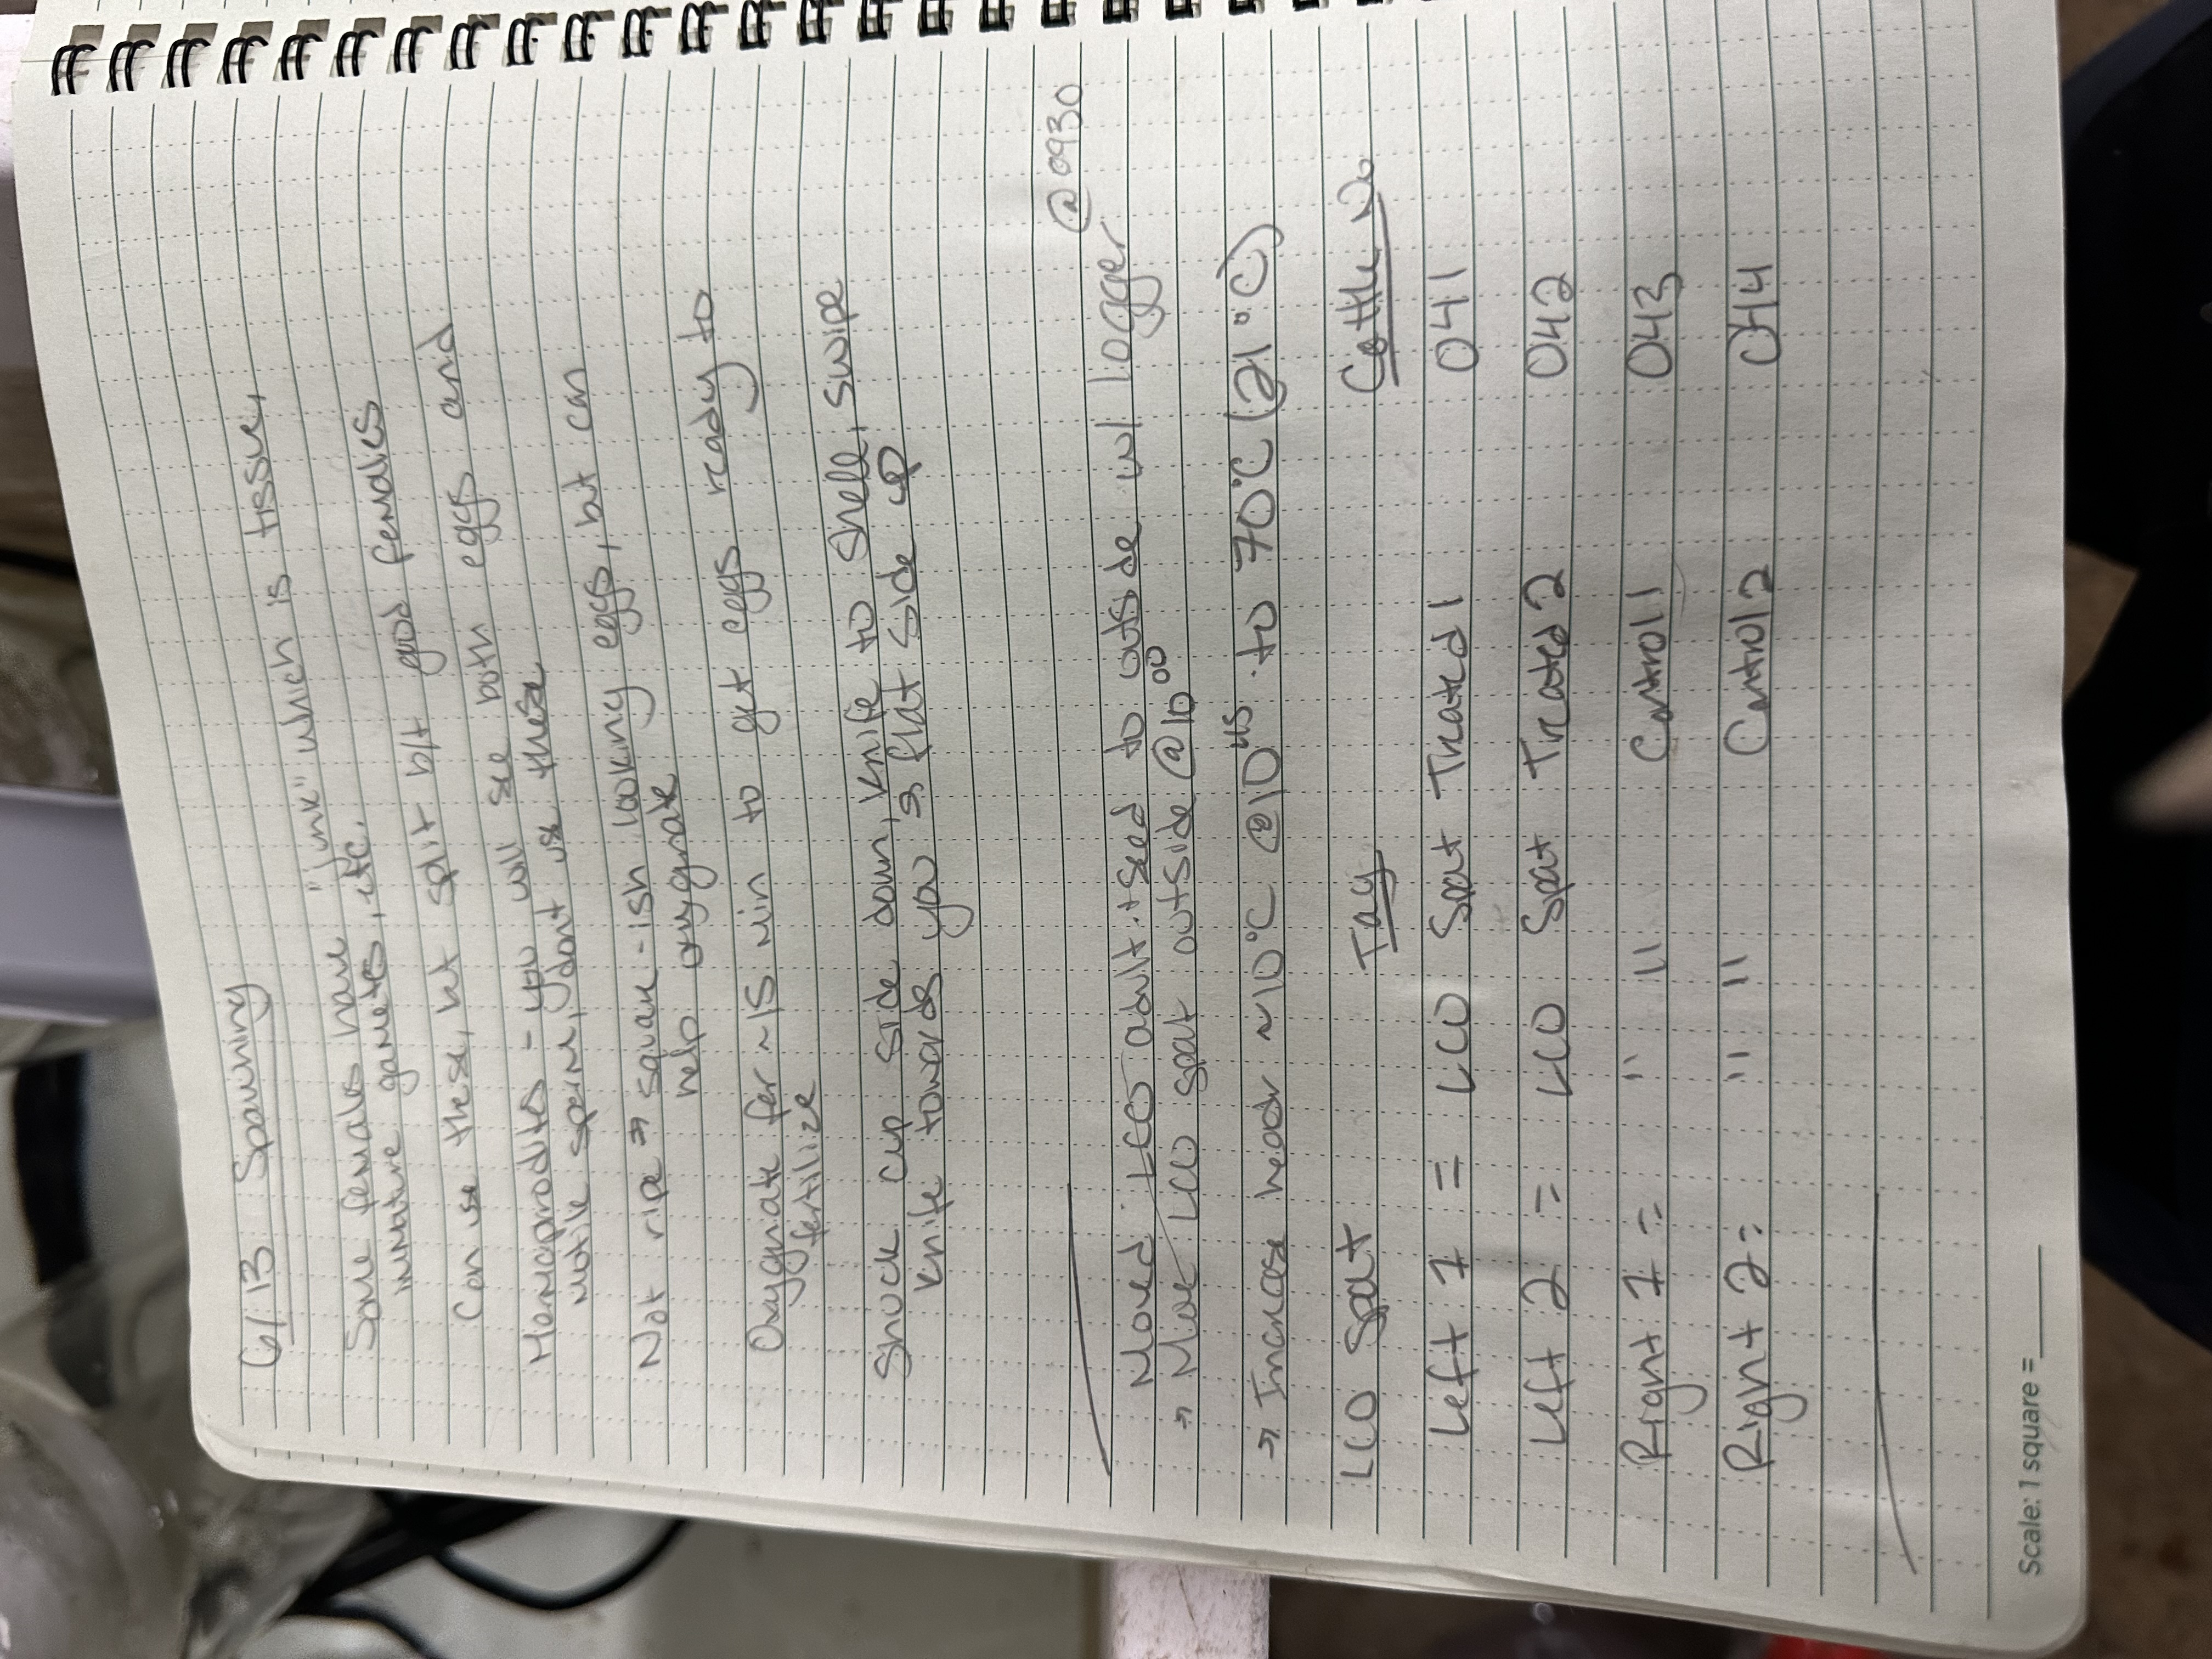 6/13 Spawning
Some females have "junk" which is tissue,
immature gametes, etc.
Can use these, but split b/t good females
Hemaprodites - you will see both eggs and
motile sperm, don't use these
Not ripe ⇒ square-ish looking eggs, but can
help oxygnate
Oxygnate for ~15 min to get eggs ready to
fertilize
Shuck cup side down, knife to shell, swipe
knife towards you → flat side up
@0930
Moved LCO adult + seed to outside w/ logger
→ Move LCO spat outside @10⁰⁰
→ Increase header ~10°C @10⁴⁵ to 70°C (21°C)
LCO Spat Tag Cattle No
Left 1 = LCO Spat Treated 1 041
Left 2 = LCO Spat Treated 2 042
Right 1 = " " Control 1 043
Right 2 = " " Control 2 044
Scale: 1 square =